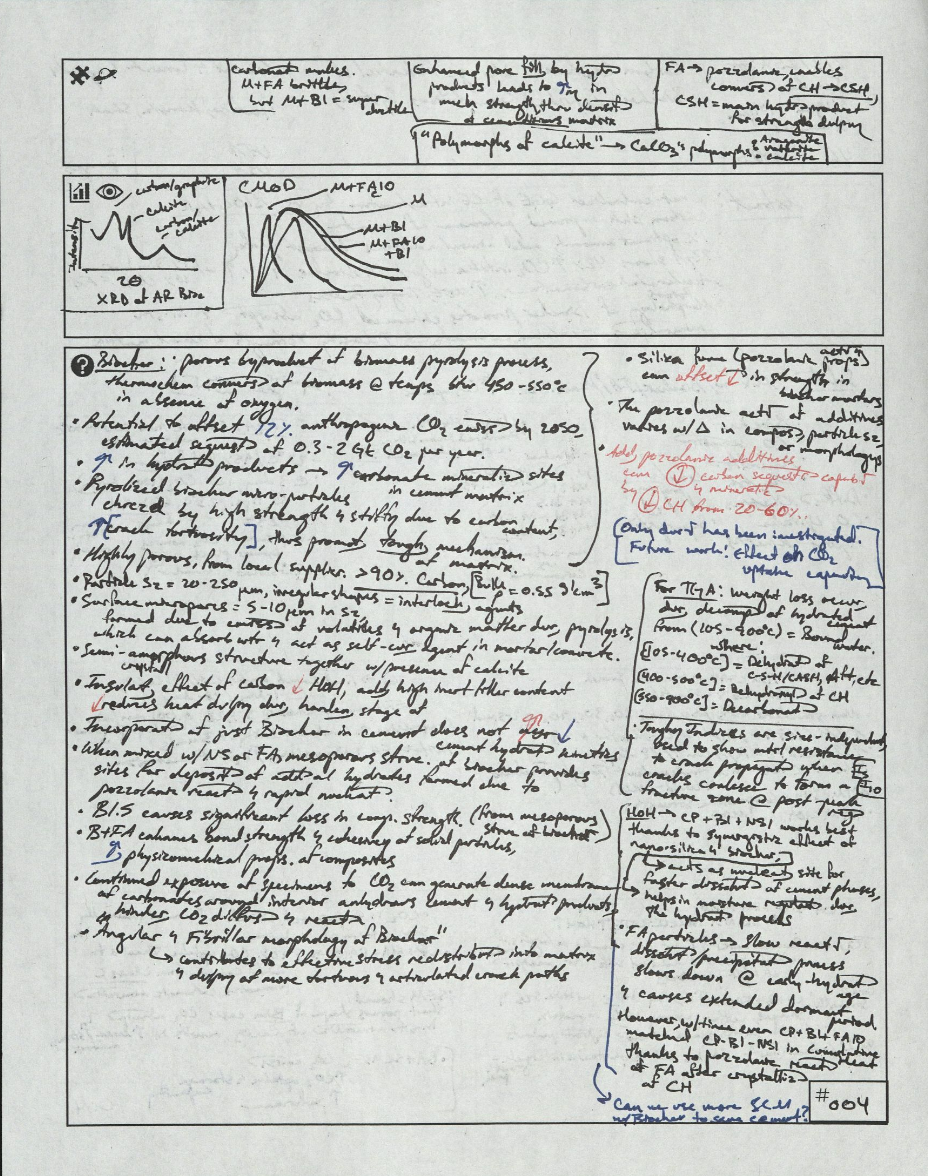 carbonat makes
M+FA brittle,
but M+B1 = super
ductile
Enhanced pore fill, by hydro
products leads to ↑ in
mech strength, thru densit
of cementitious matrix
FA → pozzolanic, enables
convers of CH → CSH,
CSH = main hydro product
for strength dvlpmg
"Polymorphs of calcite" → CaCO3 polymorphs:
Aragonite
vaterite
calcite
carbon/graphite
calcite
carbon/
calcite
Intensity
2θ
XRD of AR Bioc
CMOD
M+FA10
M
M+B1
M+FA10
+B1
Biochar:: porous byproduct of biomass pyrolysis process,
thermochem convers of biomass @ temps btw 450-550°C
in absence of oxygen.
• Potential to offset 12% anthropogenic CO2 emiss by 2050,
estimated sequest of 0.3-2 Gt CO2 per year.
• ↑ in hydrat products → ↑ carbonate mineraliz sites
in cement matrix
• Pyrolized biochar micro-particles
chrczd by high strength & stiffy due to carbon content,
↑[crack tortuosity], thus promot tough mechanism
of matrix.
• Highly porous, from local supplier. >90% Carbon, [Bulk ρ = 0.55 g/cm3]
• Particle sz = 20-250 μm, irregular shapes = interlock agents
• Surface micropores = 5-10 μm in sz,
formed due to of volatiles & organic matter dur, pyrolysis,
which can absorb wtr & act as self-cur agent in mortar/concrete.
• Semi-amorphous structure together w/ presence of calcite
crystall
• Insulat, effect of carbon ↓ HoH, adds high inert filler content
↓ reduces heat dvlpmg dur, harden, stage of
• Incorporat of just Biochar in cement does not ↑ or ↓
cement hydrat kinetics
• When mixed w/NS or FA, mesoporous struc. of biochar provides
sites for deposit of addtal hydrates formed due to
pozzolanic react & rapid nucleat.
• B1.5 causes significant loss in comp. strength. (from mesoporous
struc of biochar)
• B+FA enhances bond strength & cohesivy of solid particles,
↑ physicomechical props. of composites
• Continued exposure of specimens to CO2 can generate dense membrane
of carbonates around interior anhydrous cement & hydrat products,
↳ hinder CO2 diffus & react
• "Angular & Fibrillar morphology of Biochar"
↳ contributes to effective stress redistribut into matrix
& dvlpmg of more tortuous & articulated crack paths
• Silica fume (pozzolanic actv & props)
can offset ↓ in strength in
biochar mortars
• The pozzolanic actv of additives
varies w/ Δ in compos, particle sz,
morphology
• Add, pozzolanic additives
can ↓ carbon sequest capabt
& mineraliz
by ↓ CH from 20-60%.
(Only has been investigated.
Future work: Effect on CO2
uptake capacity
For TGA: weight loss occur,
dur, decomp of hydrated cement
from (105-900°C) = Bound
where: water.
[105-400°C] = Dehydrat of
C-S-H/CASH, Aft, etc
[400-500°C] = Dehydroxyl of CH
[550-900°C] = Decarbonat
Tough Indices are size-independent,
used to show matrl resistance
to crack propagat when I5
cracks coalesce to form a I10
fracture zone @ post-peak
reg
HoH → CP+B1+NS1 works best
thanks to synergistic effect of
nano-silica & biochar,
↳ acts as nucleat site for
faster dissolut of cement phases,
↳ helps in moisture regulat dur,
the hydrat process
• FA particles → slow react,
dissolut/precipitat process
slows down @ early-hydrat
age
& causes extended dormant
period.
However, w/ time even CP+B1+FA10
matched CP-B1-NS1 in cumulative
heat
thanks to pozzolanic react
of FA after crystalliz
of CH
↳ Can we use more SCM
w/ Biochar to save cement?
#004